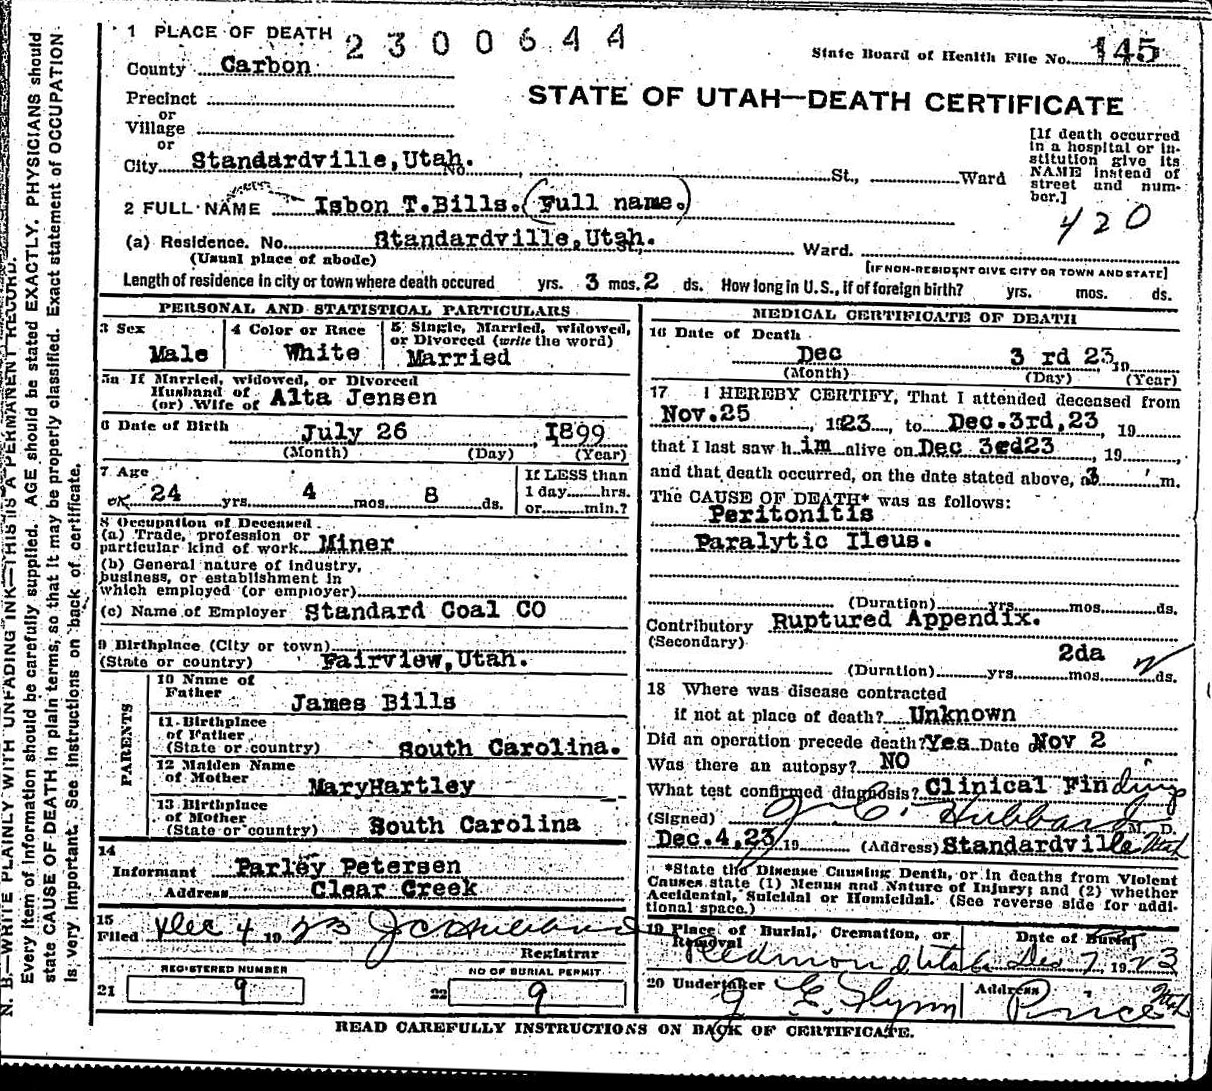 1 PLACE OF DEATH 2300644
State Board of Health File No. 145
County Carbon
STATE OF UTAH—DEATH CERTIFICATE
Precinct
or
Village
or
City Standardville, Utah. No. St., Ward
[If death occurred in a hospital or institution give its NAME instead of street and number.]
420
2 FULL NAME Isbon T. Bills. (Full name.)
(a) Residence. No. Standardville, Utah. Ward.
(Usual place of abode)
[IF NON-RESIDENT GIVE CITY OR TOWN AND STATE]
Length of residence in city or town where death occured yrs. 3 mos. 2 ds. How long in U.S., if of foreign birth? yrs. mos. ds.
PERSONAL AND STATISTICAL PARTICULARS
3 Sex Male
4 Color or Race White
5 Single, Married, widowed, or Divorced (write the word) Married
5a If Married, widowed, or Divorced
Husband of
(or) Wife of Alta Jensen
6 Date of Birth July 26, 1899
(Month) (Day) (Year)
7 Age
OK 24 yrs. 4 mos. 8 ds.
If LESS than
1 day hrs.
or min.?
8 Occupation of Deceased
(a) Trade, profession or
particular kind of work Miner
(b) General nature of industry,
business, or establishment in
which employed (or employer)
(c) Name of Employer Standard Coal CO
9 Birthplace (City or town)
(State or country) Fairview, Utah.
PARENTS
10 Name of
Father James Bills
11 Birthplace
of Father
(State or country) South Carolina.
12 Maiden Name
of Mother Mary Hartley
13 Birthplace
of Mother
(State or country) South Carolina
14
Informant Parley Petersen
Address Clear Creek
15
Filed Dec 4 19 23 J C Hubbard
Registrar
REGISTERED NUMBER
21 9
NO OF BURIAL PERMIT
22 9
MEDICAL CERTIFICATE OF DEATH
16 Date of Death
Dec 3 rd 23, 19
(Month) (Day) (Year)
17 I HEREBY CERTIFY, That I attended deceased from
Nov. 25, 1923, to Dec. 3rd, 23, 19
that I last saw him alive on Dec 3rd 23, 19
and that death occurred, on the date stated above, a 3 m.
The CAUSE OF DEATH* was as follows:
Peritonitis
Paralytic Ileus.
(Duration) yrs. mos. ds.
Contributory Ruptured Appendix.
(Secondary)
2da
(Duration) yrs. mos. ds.
18 Where was disease contracted
if not at place of death? Unknown
Did an operation precede death? Yes Date of Nov 2
Was there an autopsy? NO
What test confirmed diagnosis? Clinical Findings
(Signed) J C Hubbard M. D.
Dec. 4, 23, 19 (Address) Standardville Utah
*State the Disease Causing Death, or in deaths from Violent
Causes state (1) Menus and Nature of Injury; and (2) whether
Accidental, Suicidal or Homicidal. (See reverse side for addi-
tional space.)
19 Place of Burial, Cremation, or Removal
Redmond Utah
Date of Burial
Dec 7, 1923
20 Undertaker J E Flynn
Address Price Utah
READ CAREFULLY INSTRUCTIONS ON BACK OF CERTIFICATE.
N. B.—WRITE PLAINLY WITH UNFADING INK—THIS IS A PERMANENT RECORD.
Every item of information should be carefully supplied. AGE should be stated EXACTLY. PHYSICIANS should
state CAUSE OF DEATH in plain terms, so that it may be properly classified. Exact statement of OCCUPATION
is very important. See instructions on back of certificate.